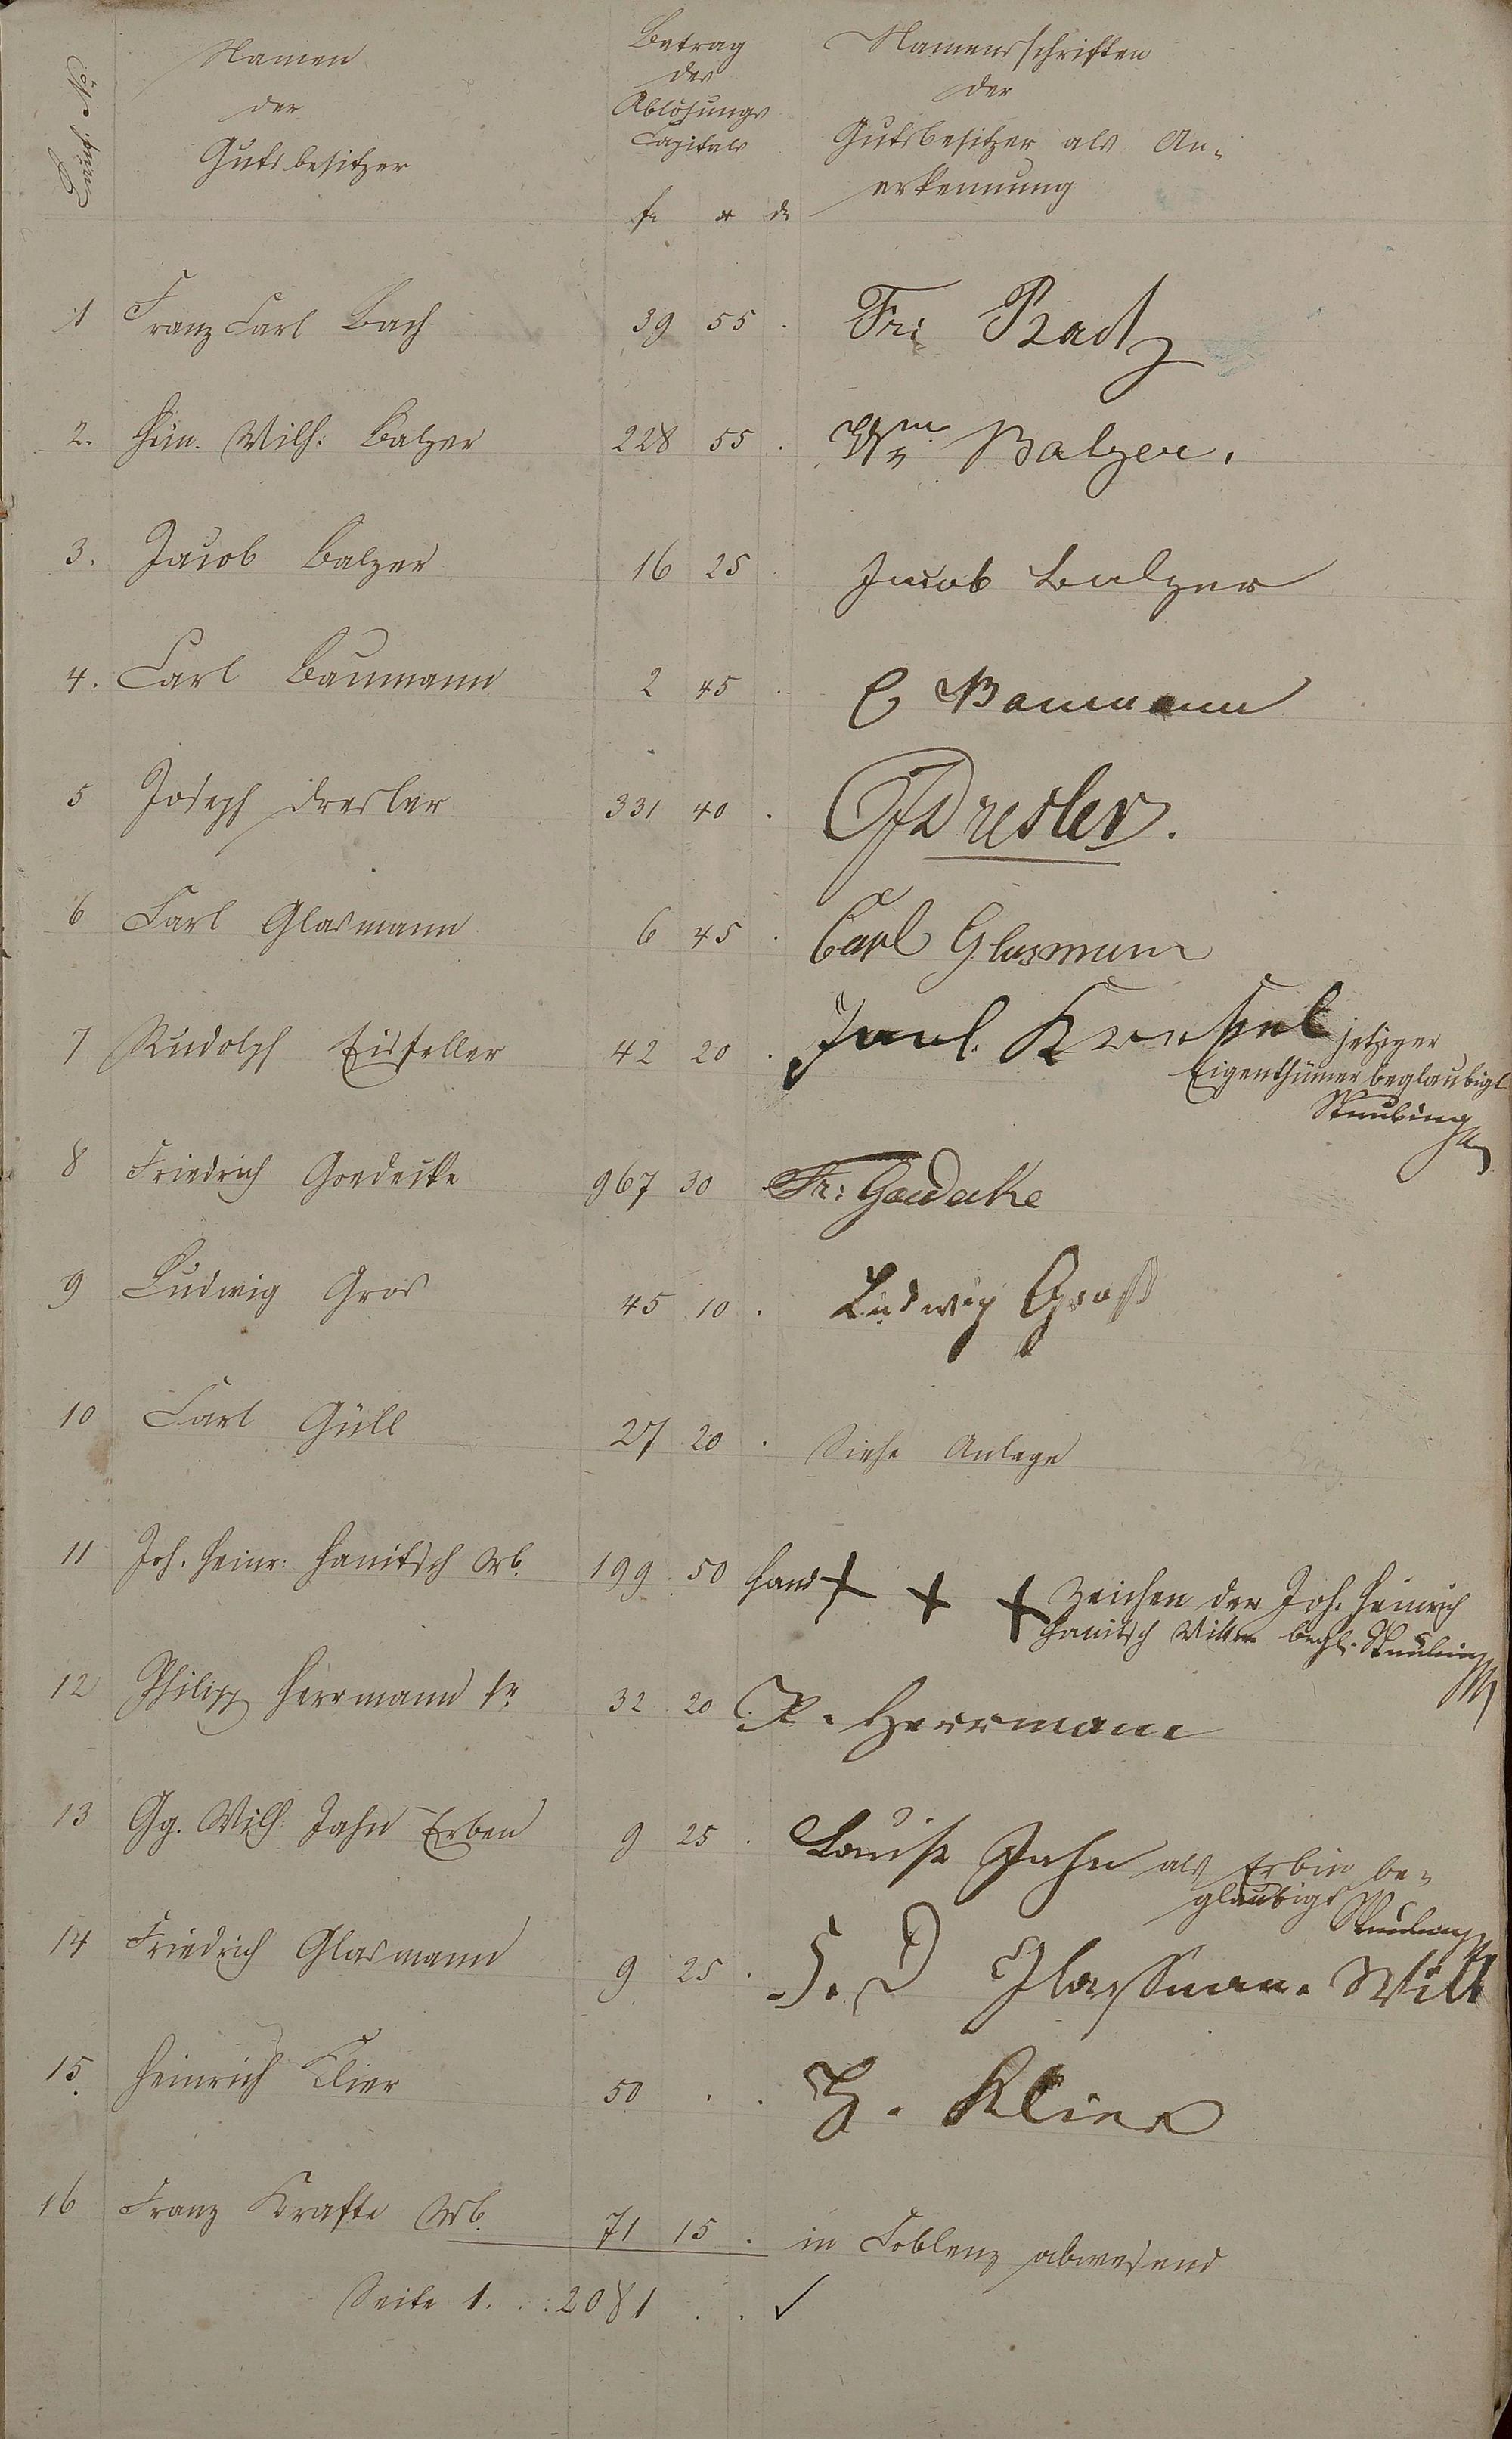 Namen
der
Gutsbesitzer
Betrag
des
Ablösungs
Capitals
Namensschriften
der
Gutsbesitzer als An-
erkennung
1 Franz Carl Bach 39 55 . Fr: Bach
2. Hein. Wilh: Balzer 228 55 . Wm Balzer.
3. Jacob Balzer 16 25 . Jacob Balzer
4. Carl Baumann 2 45 . C Baumann
5 Joseph Dresler 331 40 . JDresler.
6 Carl Glasmann 6 45 . Carl Glasmann
7 Rudolph Eisfeller 42 20 . jetziger
Eigenthümer beglaubigt
8 Friedrich Goedecke 967 30 . Fr: Goedecke
9 Ludwig Gros 45 10 . Ludwig Groß
10 Carl Güll 27 20 . Siehe Anlage
11 Joh. Heinr: Hanitsch Wb. 199 50 Hand + + + Zeichen der Joh. Heinrich
Hanitsch Wittwe begl.
12 Philipp Herrmann 1r 32 20 . P. Herrmann
13 Gg. Wilh: Jahn Erben 9 25 . Louise Jahn als Erbin be-
glaubigt
14 Friedrich Glasmann 9 25 . Glassmann Witt
15. Heinrich Klier 50 . . H. Klier
16 Franz Krafte Wb. 71 15 . in Coblenz abwesend
Seite 1. . : 2081 . . ✓